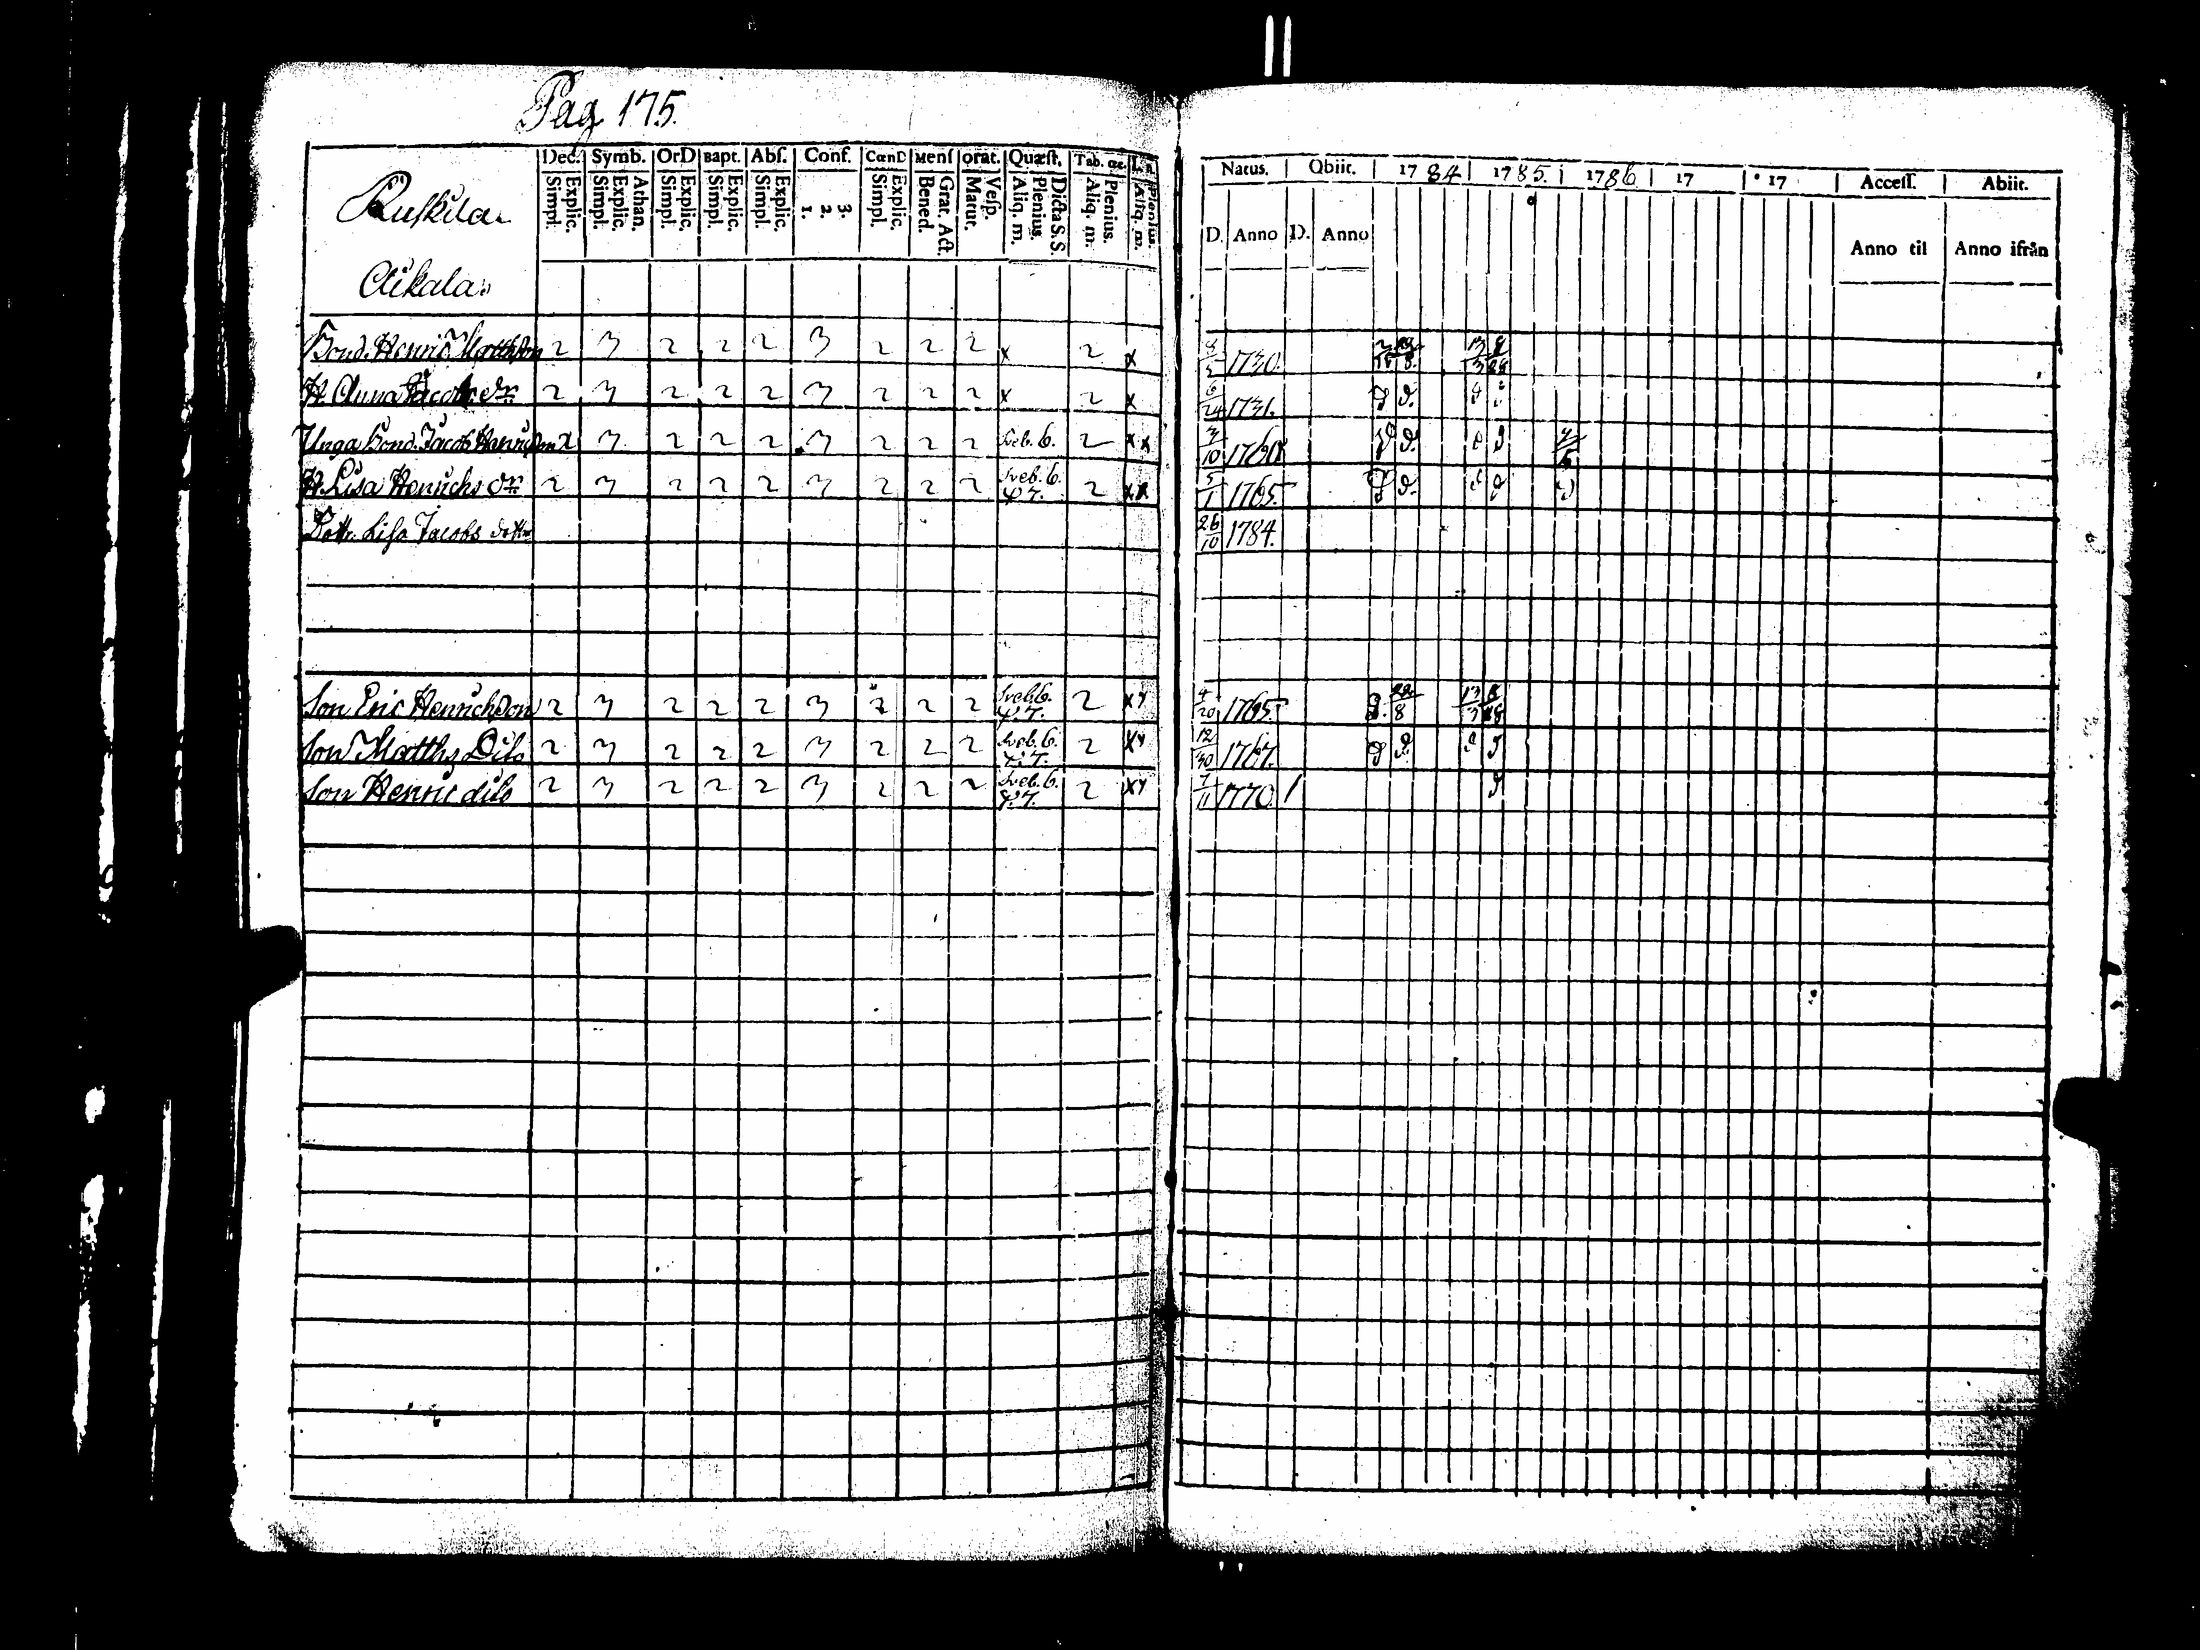 Pag 175.
Ruskila
Aikala
Dec. Symb. OrD Bapt. Abſ. Conf. CœnD Menſ orat. Quæſt. Tab. œc. L. n.
Simpl. Explic. Simpl. Explic. Athan. Simpl. Explic. Simpl. Explic. Simpl. Explic. 1. 2. 3. Simpl. Explic. Bened. Grat. Act. Matut. Veſp. Aliq. m. Plenius. Dicta S. S. Aliq. m. Plenius. Aliq. m. Plenius.
Natus. Obiit. 1784 1785. 1786 17 17 Acceſſ. Abiit.
D. Anno D. Anno Anno til Anno ifrån
Bond. Henric Matthsson 2 3 2 2 2 3 2 2 2 x 2 x 1730.
H. Anna Jacobs dr 2 3 2 2 2 3 2 2 2 x 2 x 6/24 1731.
Unga Bond. Jacob Henricson 2 3 2 2 2 3 2 2 2 Sveb. 6. 2 x x 1760
H. Lisa Henrichs dr 2 3 2 2 2 3 2 2 2 Sveb. 6. 2 x x 5/1 1765.
Dottr. Lisa Jacobs dotter 26/10 1784.
Son Eric Henrichson 2 3 2 2 2 3 2 2 2 Sveb. 6. 2 x 4/20 1765.
Son Matths Dito 2 3 2 2 2 3 2 2 2 Sveb. 6. 2 x 12/30 1767.
Son Henric dito 2 3 2 2 2 3 2 2 2 Sveb. 6. 2 x 7/11 1770.